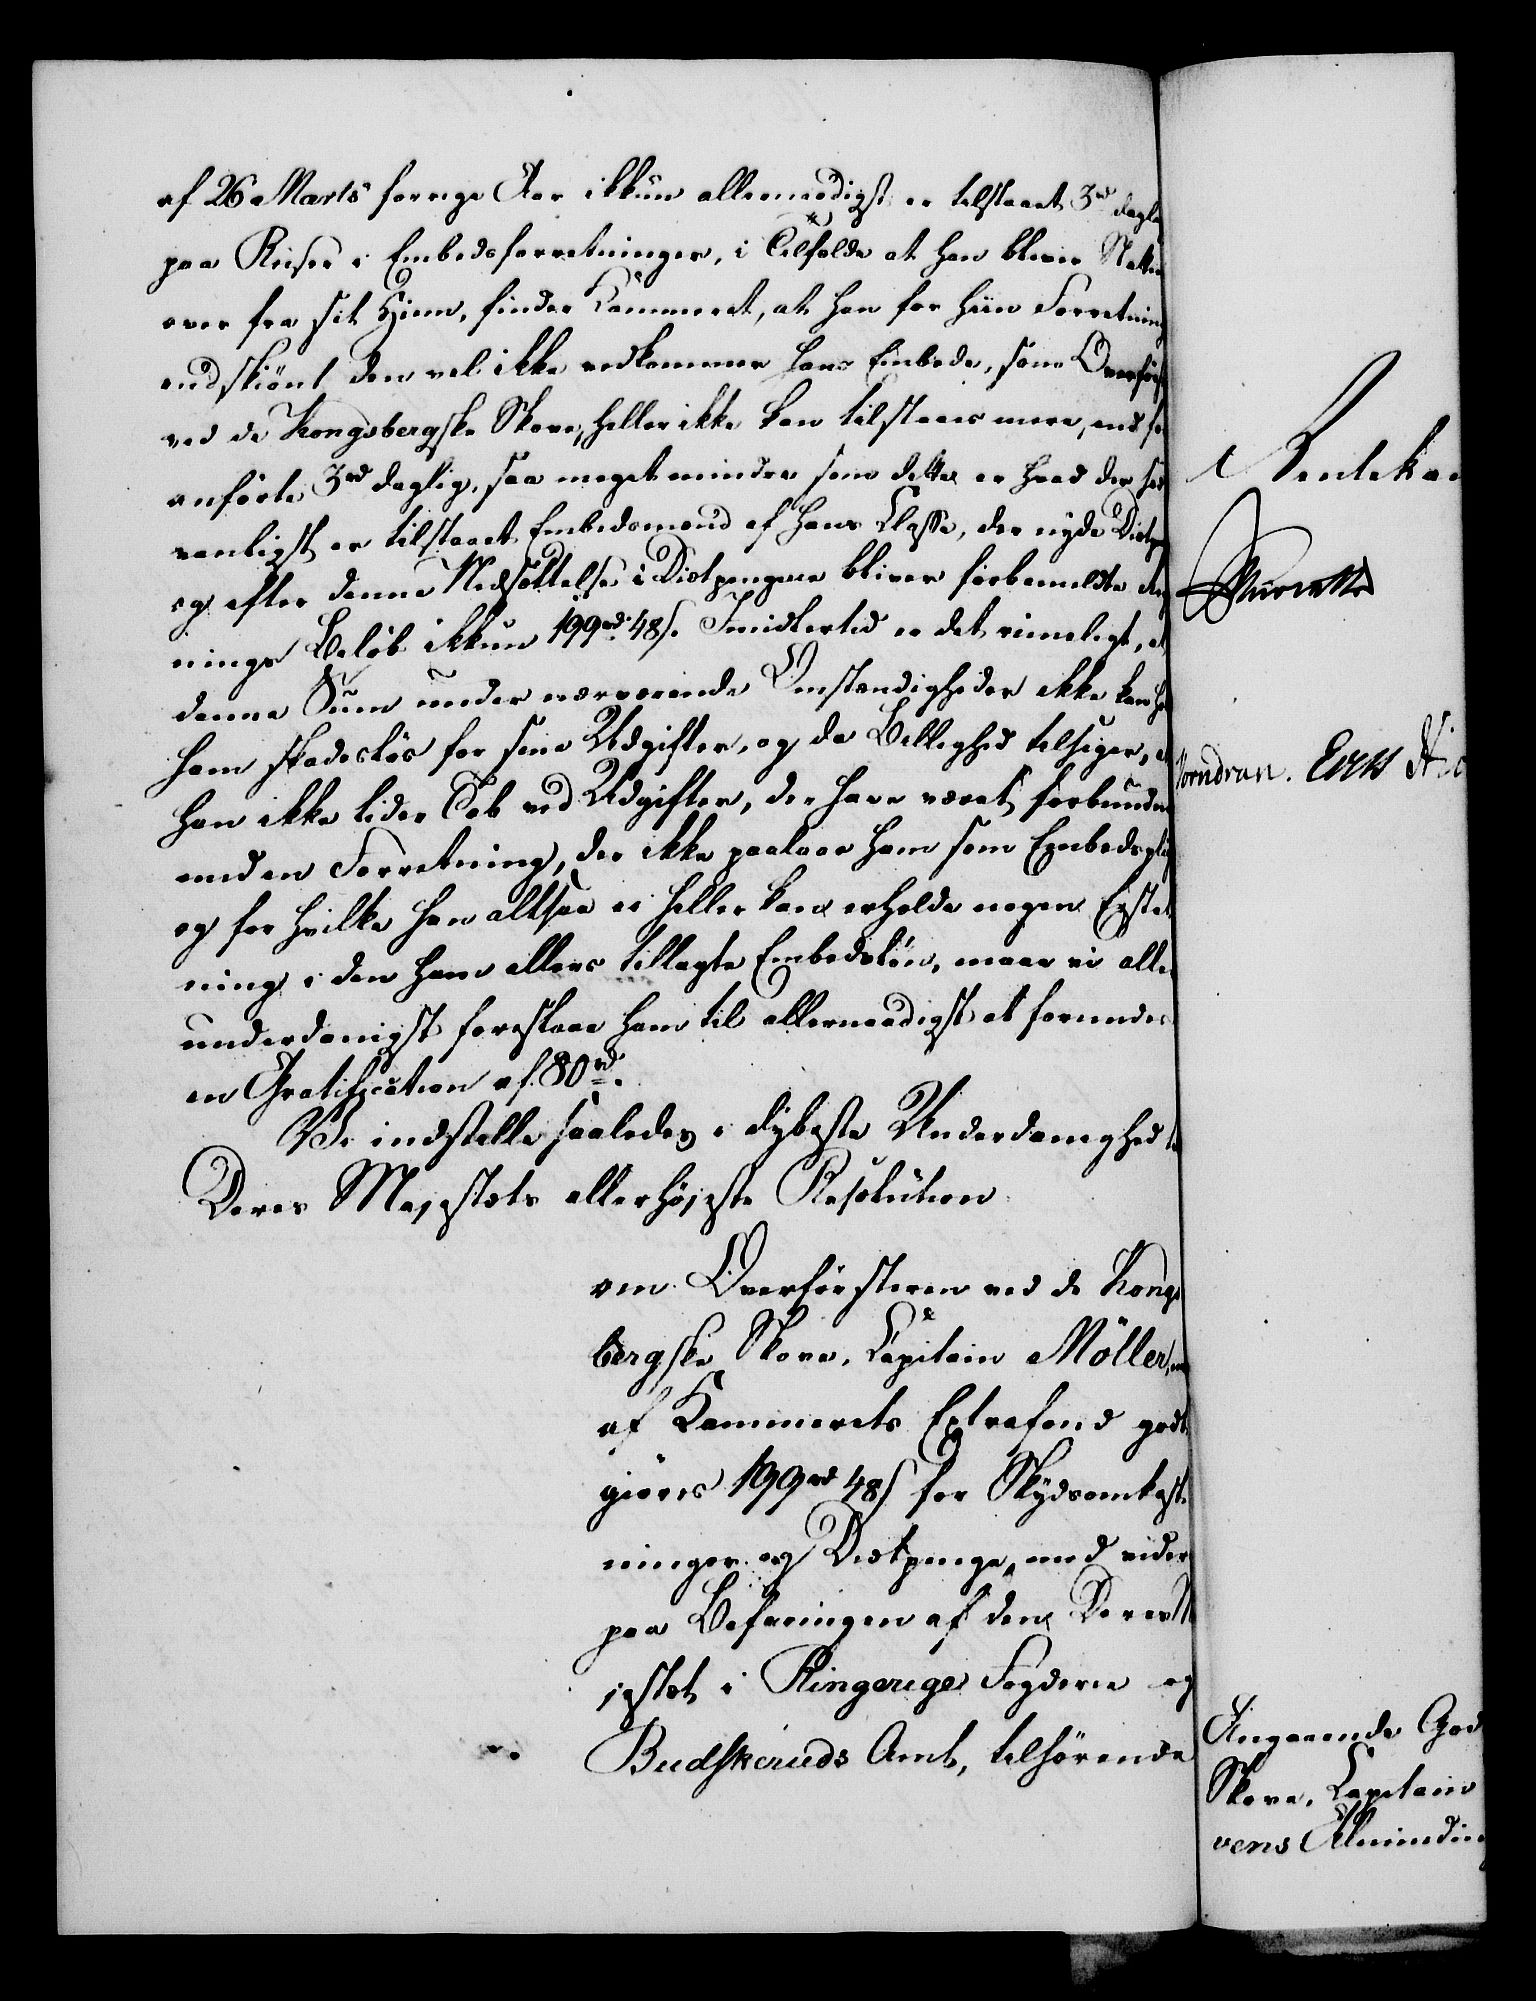 af 26 Marts forrige Aar ikkun allernaadigst er tilstaaet 3rd dagl
paa Reiser i Embedsforretninger, i Tilfælde at han bliver Natten
over fra sit Hiem, finder Kammeret, at han for hiin Forretning
endskiönt den vel ikke vedkommer hans Embede, som Overförst
ved de Kongsbergske Skove, heller ikke kan tilstaaes mere, end for
anförte 3rd daglig, saa meget mindre som dette er hvad der sæd
vanligst er tilstaaet Embedsmænd af hans Classe, der nyde Diætpen
og efter denne Nedsættelse i Diætpengene bliver forbemeldte Reg
nings Belöb ikkun 199rd 48s. Imidlertid er det rimeligt, at
denne Sum under nærværende Omstændigheder ikke kan ho
ham skadeslös for sine Udgifter, og da Billighed tilsiger, at
han ikke lider Tab ved Udgifter, der have været forbundne
med en Forretning, der ikke paalaae ham som Embedspligt
og for hvilke han altsaa ei heller kan erholde nogen Erstat
ning i den ham ellers tillagte Embedslön, maae vi aller
underdanigst foreslaae ham til allernaadigst at forundes
en Gratification af 80rd.
Vi indstille saaledes i dybeste Underdanighed til
Deres Majestæts allerhöjeste Resolution
om Overförsteren ved de Kongs
bergske Skove, Capitain Möller, maa
af Kammerets Extrafond godt
giöres 199rd 48s for Skydsomkost
ninger og Diætpenge, med videre
paa Befaringen af den Deres Ma
jestæt i Ringerige Fogderie og
Budskeruds Amt, tilhörende
Rentekam
Vorndran. Eeks Nic
Angaaende God
Skove, Capitain
vens Alminding